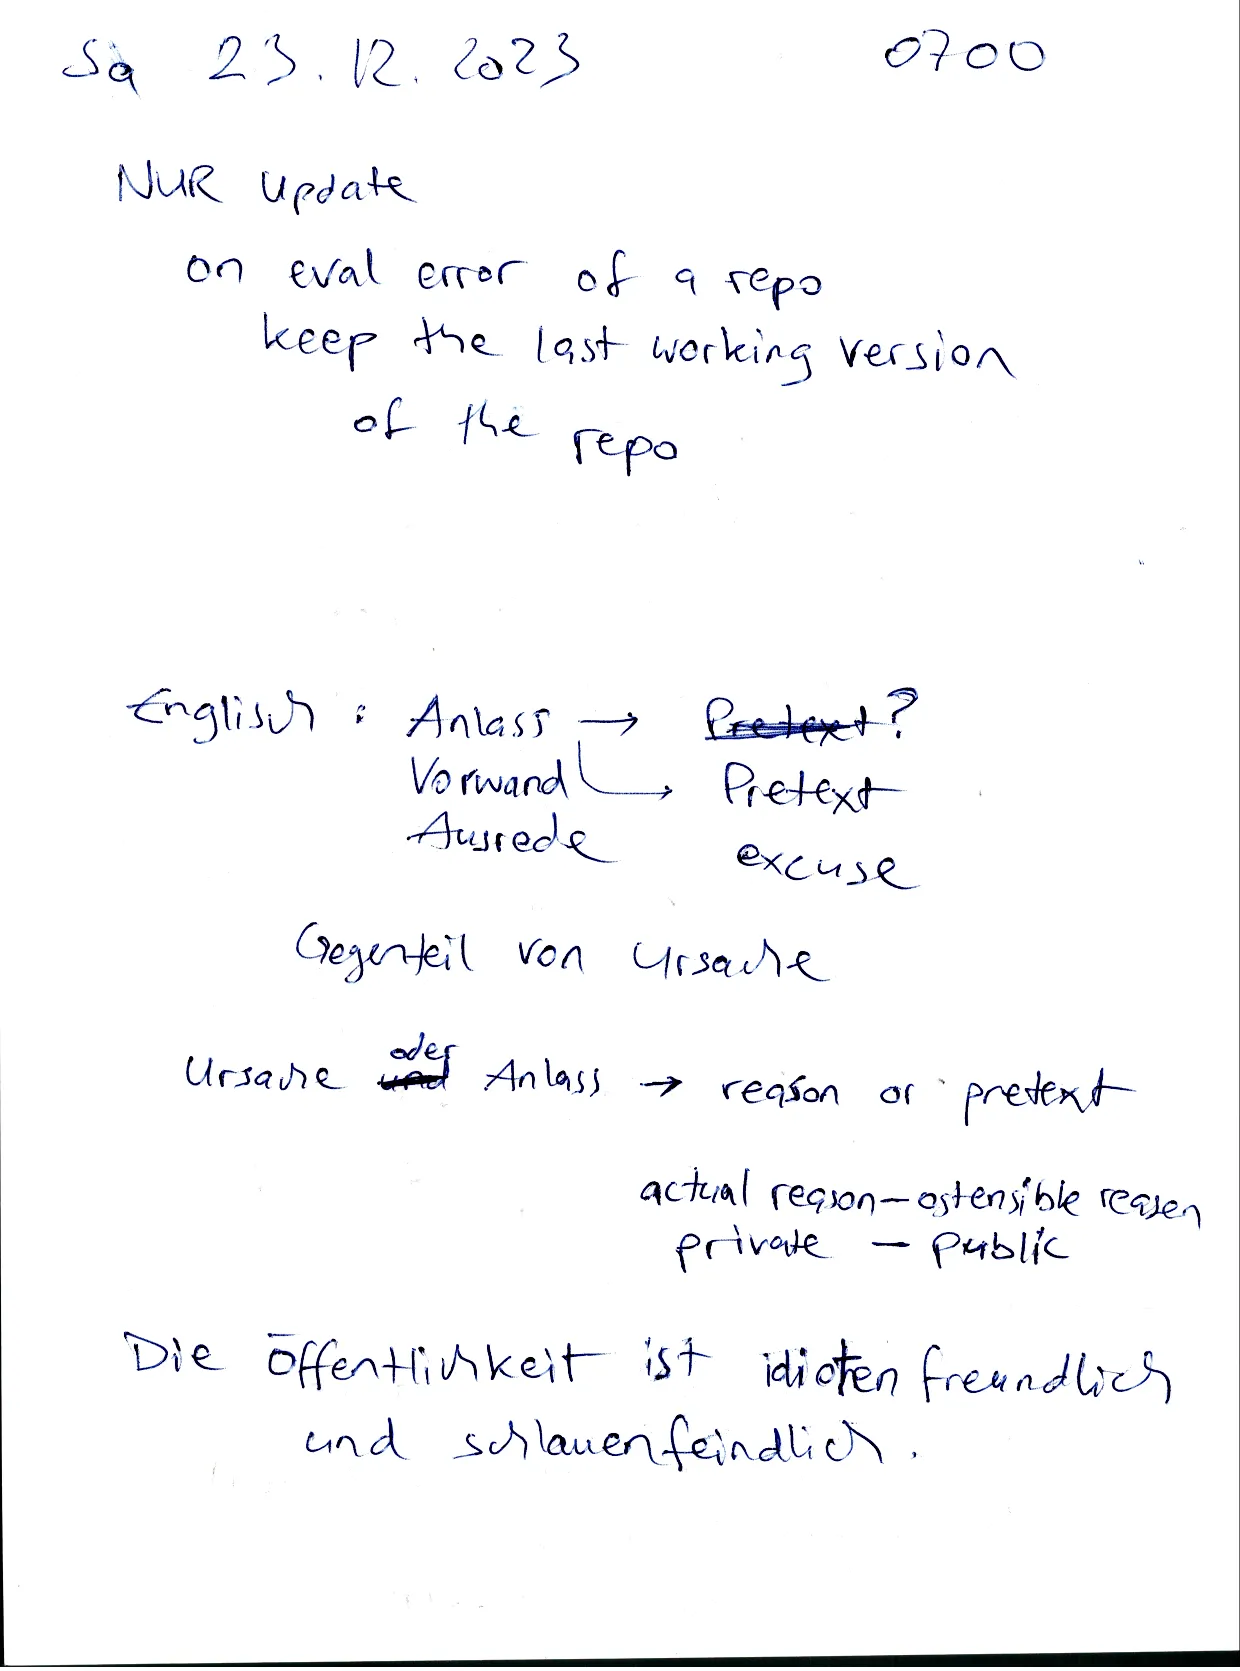 Sa 23.12.2023 0700
NUR update
on eval error of a repo
keep the last working version
of the repo
Englisch : Anlass → Pretext?
Vorwand → Pretext
Ausrede excuse
Gegenteil von Ursache
oder
Ursache und Anlass → reason or pretext
actual reason – ostensible reason
private – public
Die öffentlichkeit ist idiotenfreundlich
und schlauenfeindlich.